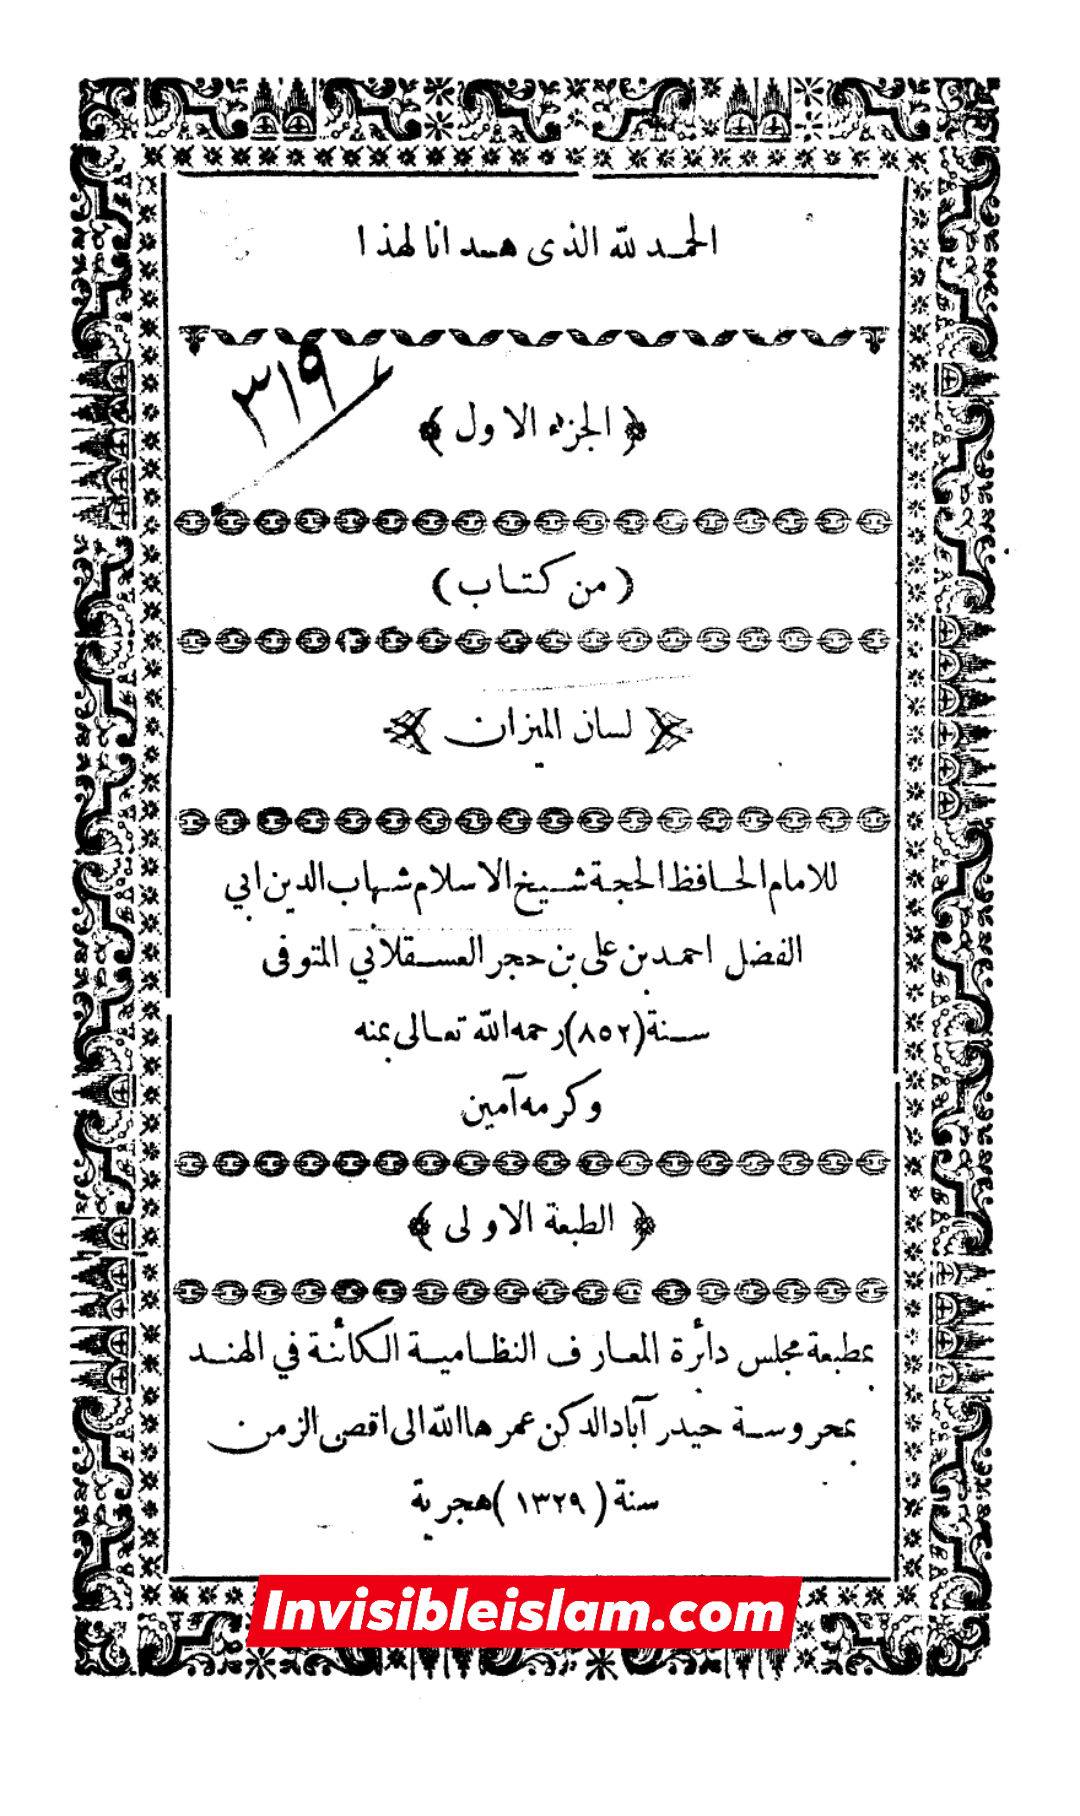 الحمد لله الذى هدانا لهذا
٣١٩
﴿ الجزء الاول ﴾
( من كتاب )
لسان الميزان
للامام الحافظ الحجة شيخ الاسلام شهاب الدين ابي
الفضل احمد بن على بن حجر العسقلاني المتوفى
سنة (٨٥٢) رحمه الله تعالى بمنه
وكرمه آمين
﴿ الطبعة الاولى ﴾
بمطبعة مجلس دائرة المعارف النظامية الكائنة في الهند
بمحروسة حيدر آباد الدكن عمرها الله الى اقصى الزمن
سنة ( ١٣٢٩ ) هجرية
Invisibleislam.com